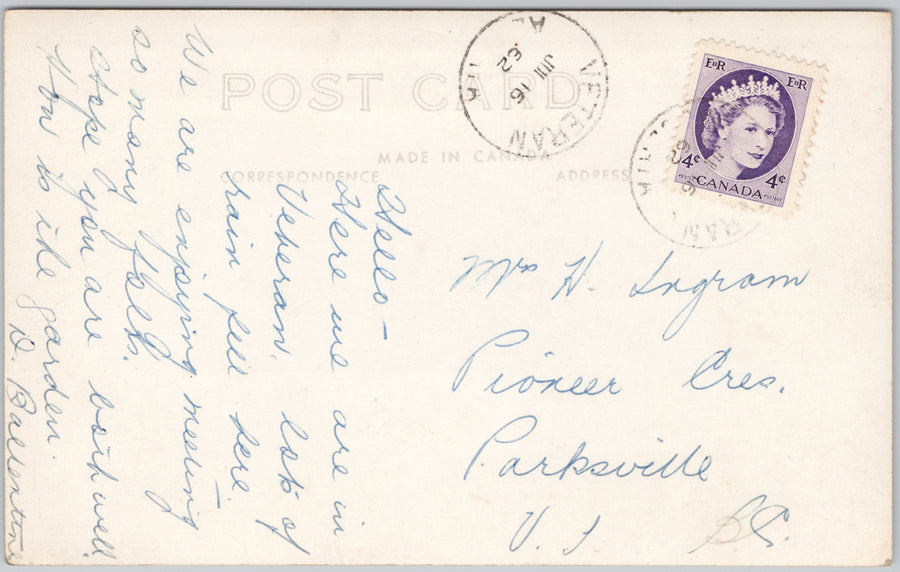 POST CARD
MADE IN CANADA
CORRESPONDENCE
ADDRESS
VETERAN
JUL 16
62
ALTA
E II R
E II R
4¢
4¢
POSTES CANADA POSTAGE
Hello –
Here we are in
Veteran. lots of
rain fell here –
We are enjoying meeting
so many folks.
Hope you are both well.
How is the garden.
D. Ballentine
Mrs H. Ingram
Pioneer Cres.
Parksville
V. I. BC.